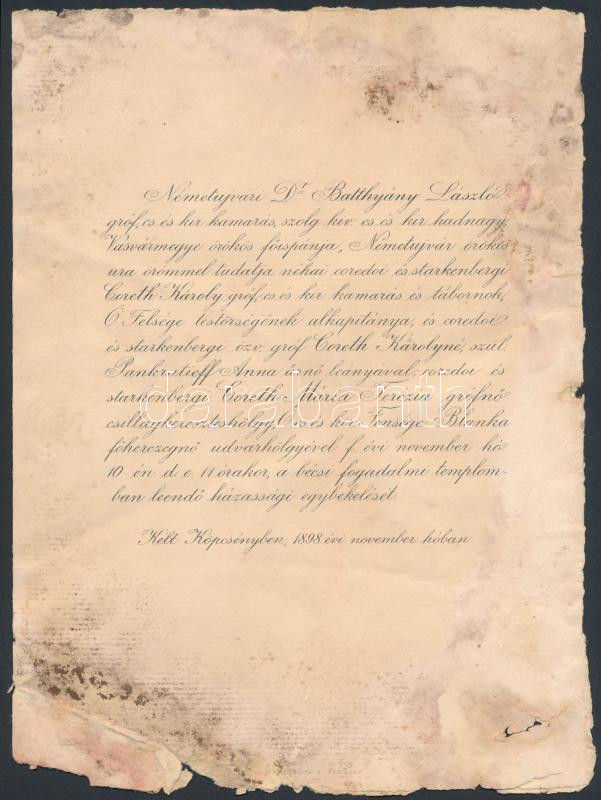 Németujvári Dr Batthyány László
gróf, cs. és kir. kamarás, szolg. kiv. cs. és kir. hadnagy,
Vasvármegye örökös főispánja, Németujvár örökös
ura örömmel tudatja néhai coredoi és starkenbergi
Coreth Károly gróf, cs. és kir. kamarás és tábornok,
Ő Felsége testőrségének alkapitánya, és coredoi
és starkenbergi özv. gróf Coreth Károlyné, szül.
Pankratieff Anna úrnő leányával: coredoi és
starkenbergi Coreth Mária Terézia grófnő
csillagkereszteshölgy, Ő cs. és kir. Fensége Blanka
főherczegnő udvarhölgyével f. évi november hó
10 én d. e. 11 órakor, a bécsi fogadalmi templom-
ban leendő házassági egybekelését.
Kelt Köpcsényben, 1898 évi november hóban.
darabanth